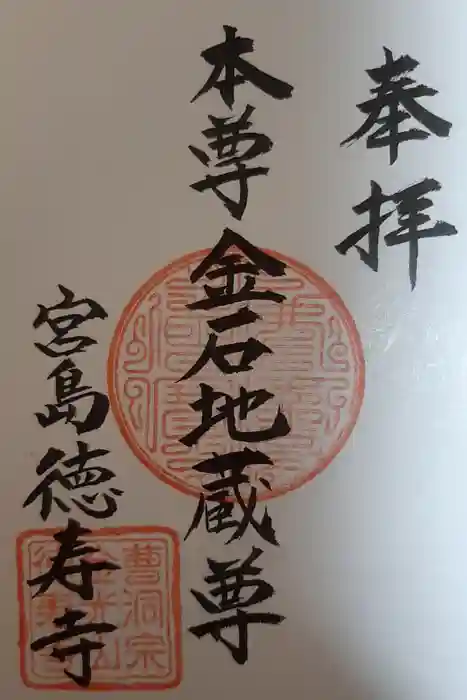 奉拝
本尊金石地蔵尊
宮島徳寿寺
曹洞宗